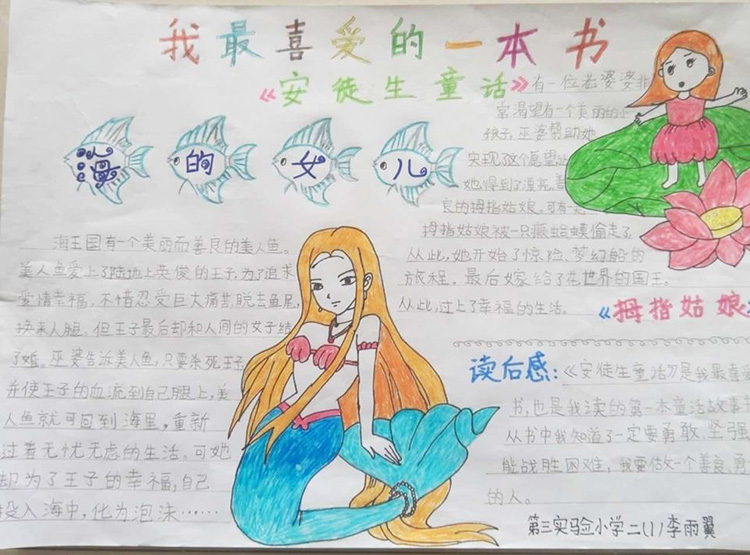 我最喜爱的一本书
《安徒生童话》
海的女儿
海王国有一个美丽而善良的美人鱼。
美人鱼爱上了陆地上英俊的王子,为了追求
爱情幸福,不惜忍受巨大痛苦,脱去鱼尾,
换来人腿。但王子最后却和人间的女子结
了婚。巫婆告诉美人鱼,只要杀死王子
并使王子的血流到自己腿上,美
人鱼就可回到海里,重新
过着无忧无虑的生活。可她
却为了王子的幸福,自己
投入海中,化为泡沫……
有一位老婆婆非
常渴望有一个美丽的
孩子,巫婆帮助她
实现这个愿望
她得到了漂亮、善
良的拇指姑娘。可有一
拇指姑娘被一只癞蛤蟆偷走了
从此,她开始了惊险、梦幻般的
旅程。最后嫁给了花世界的国王。
从此,过上了幸福的生活。
《拇指姑娘》
读后感:《安徒生童话》是我最喜爱
书,也是我读的第一本童话故事
从书中我知道了一定要勇敢、坚强
能战胜困难,我要做一个善良、勇
的人。
第三实验小学二(1)李雨翼